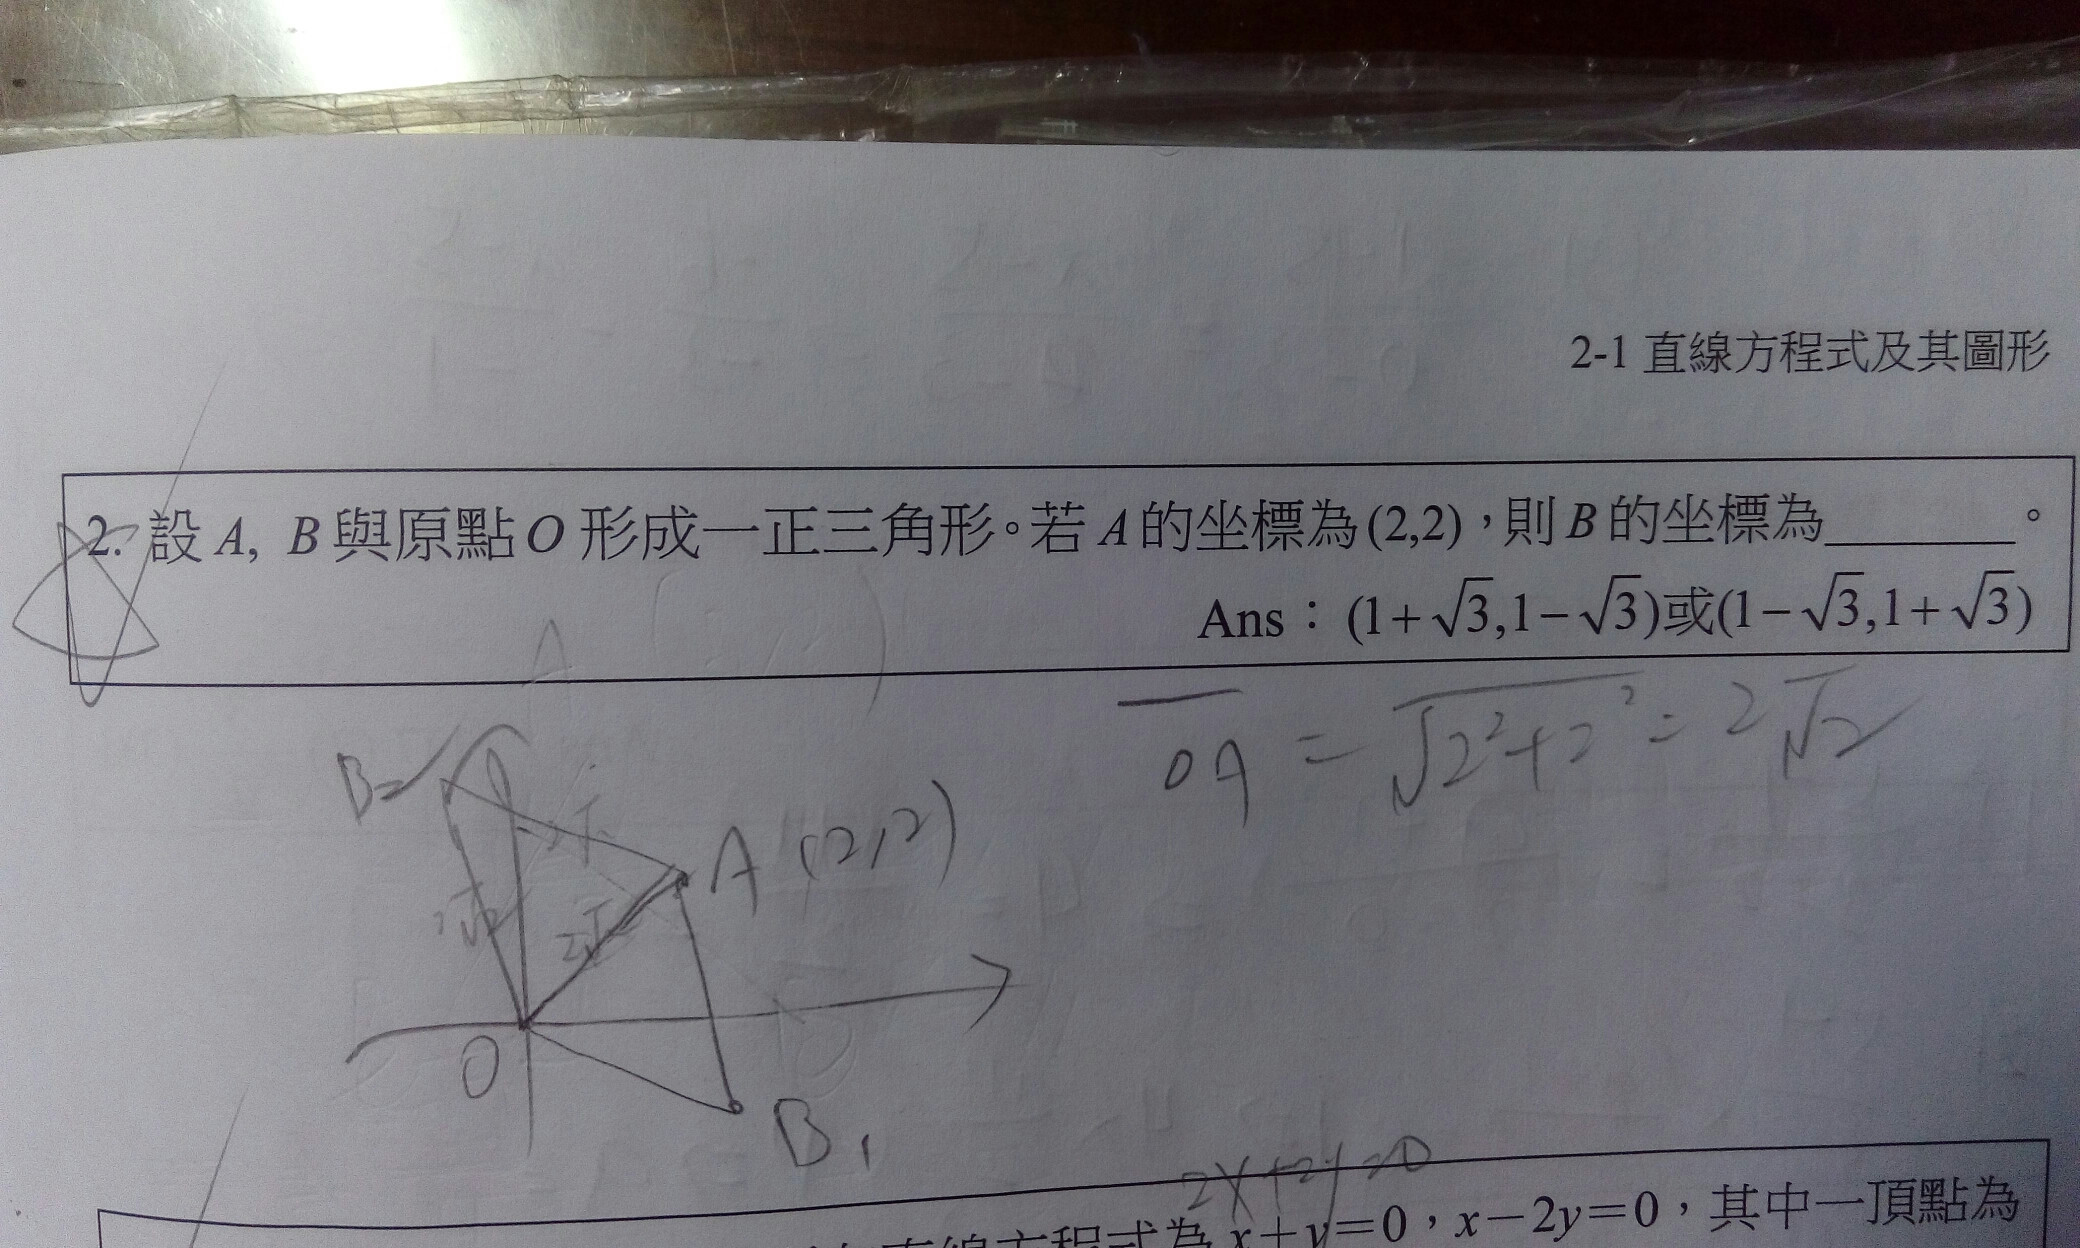 2-1 直線方程式及其圖形
2. 設 A, B 與原點 O 形成一正三角形。若 A 的坐標為 (2,2),則 B 的坐標為______。
Ans:(1+√3,1−√3)或(1−√3,1+√3)
OA = √2²+2² = 2√2
B2
A (2,2)
2√2
O
B1
2x+2y=0
直線方程式為 x+y=0,x−2y=0,其中一頂點為